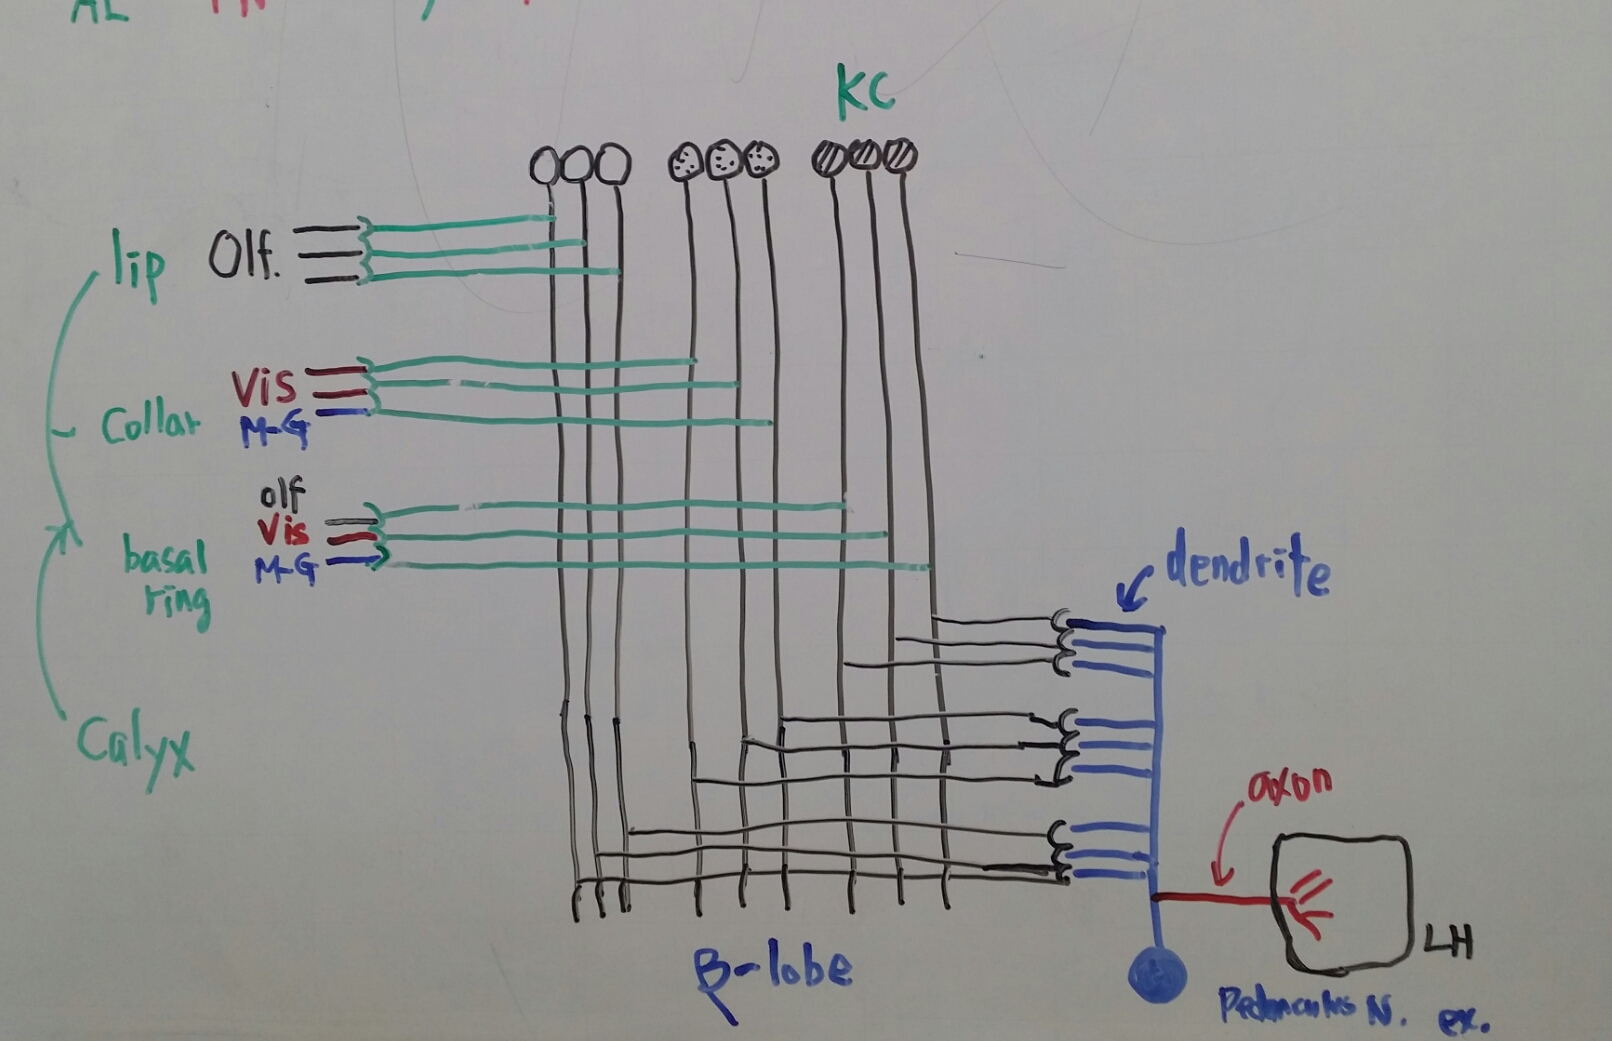 AL PN
KC
lip Olf.
Vis
Collar M-G
olf
Vis
basal M-G
ring
dendrite
Calyx
axon
LH
β-lobe
Pedunculus N. ex.